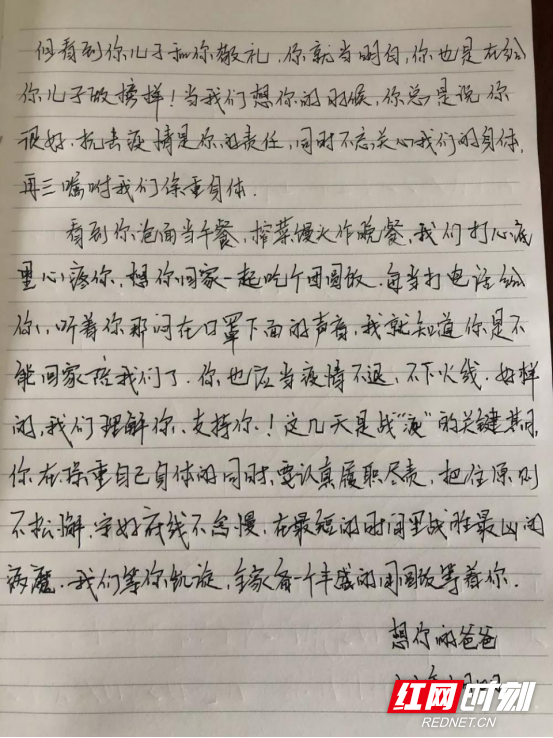 但看到你儿子和你敬礼，你就当明白，你也是在给
你儿子做榜样！当我们想你的时候，你总是说你
很好，抗击疫情是你的责任，同时不忘关心我们的身体，
再三嘱咐我们保重身体．
看到你泡面当午餐，榨菜馒头作晚餐，我们打心底
里心疼你，想你回家一起吃个团圆饭．每当打电话给
你，听着你那闷在口罩下面的声音，我就知道你是不
能回家陪我们了．你也应当疫情不退，不下火线．好样
的，我们理解你、支持你！这几天是战“疫”的关键期，
你在保重自己身体的同时，要认真履职尽责，把住原则
不松懈，守好底线不怠慢，在最短的时间里战胜最凶的
病魔．我们等你凯旋，全家有一个丰盛的团圆饭等着你．
想你的爸爸
红网时刻
REDNET.CN